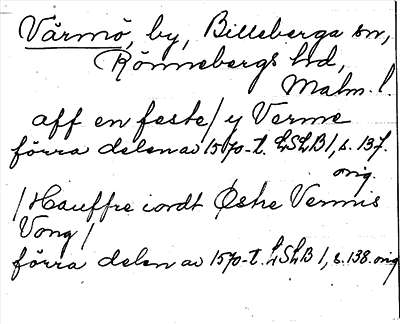 Värmö, by, Billeberga sn,
Rönnebergs hd,
Malm. l.
aff en feste / y Verme
förra delen av 1570-t. LSLB 1, s. 137.
orig.
/ Hauffre iordt Østre Vermis
Vong /
förra delen av 1570-t. LSLB 1, s. 138. orig